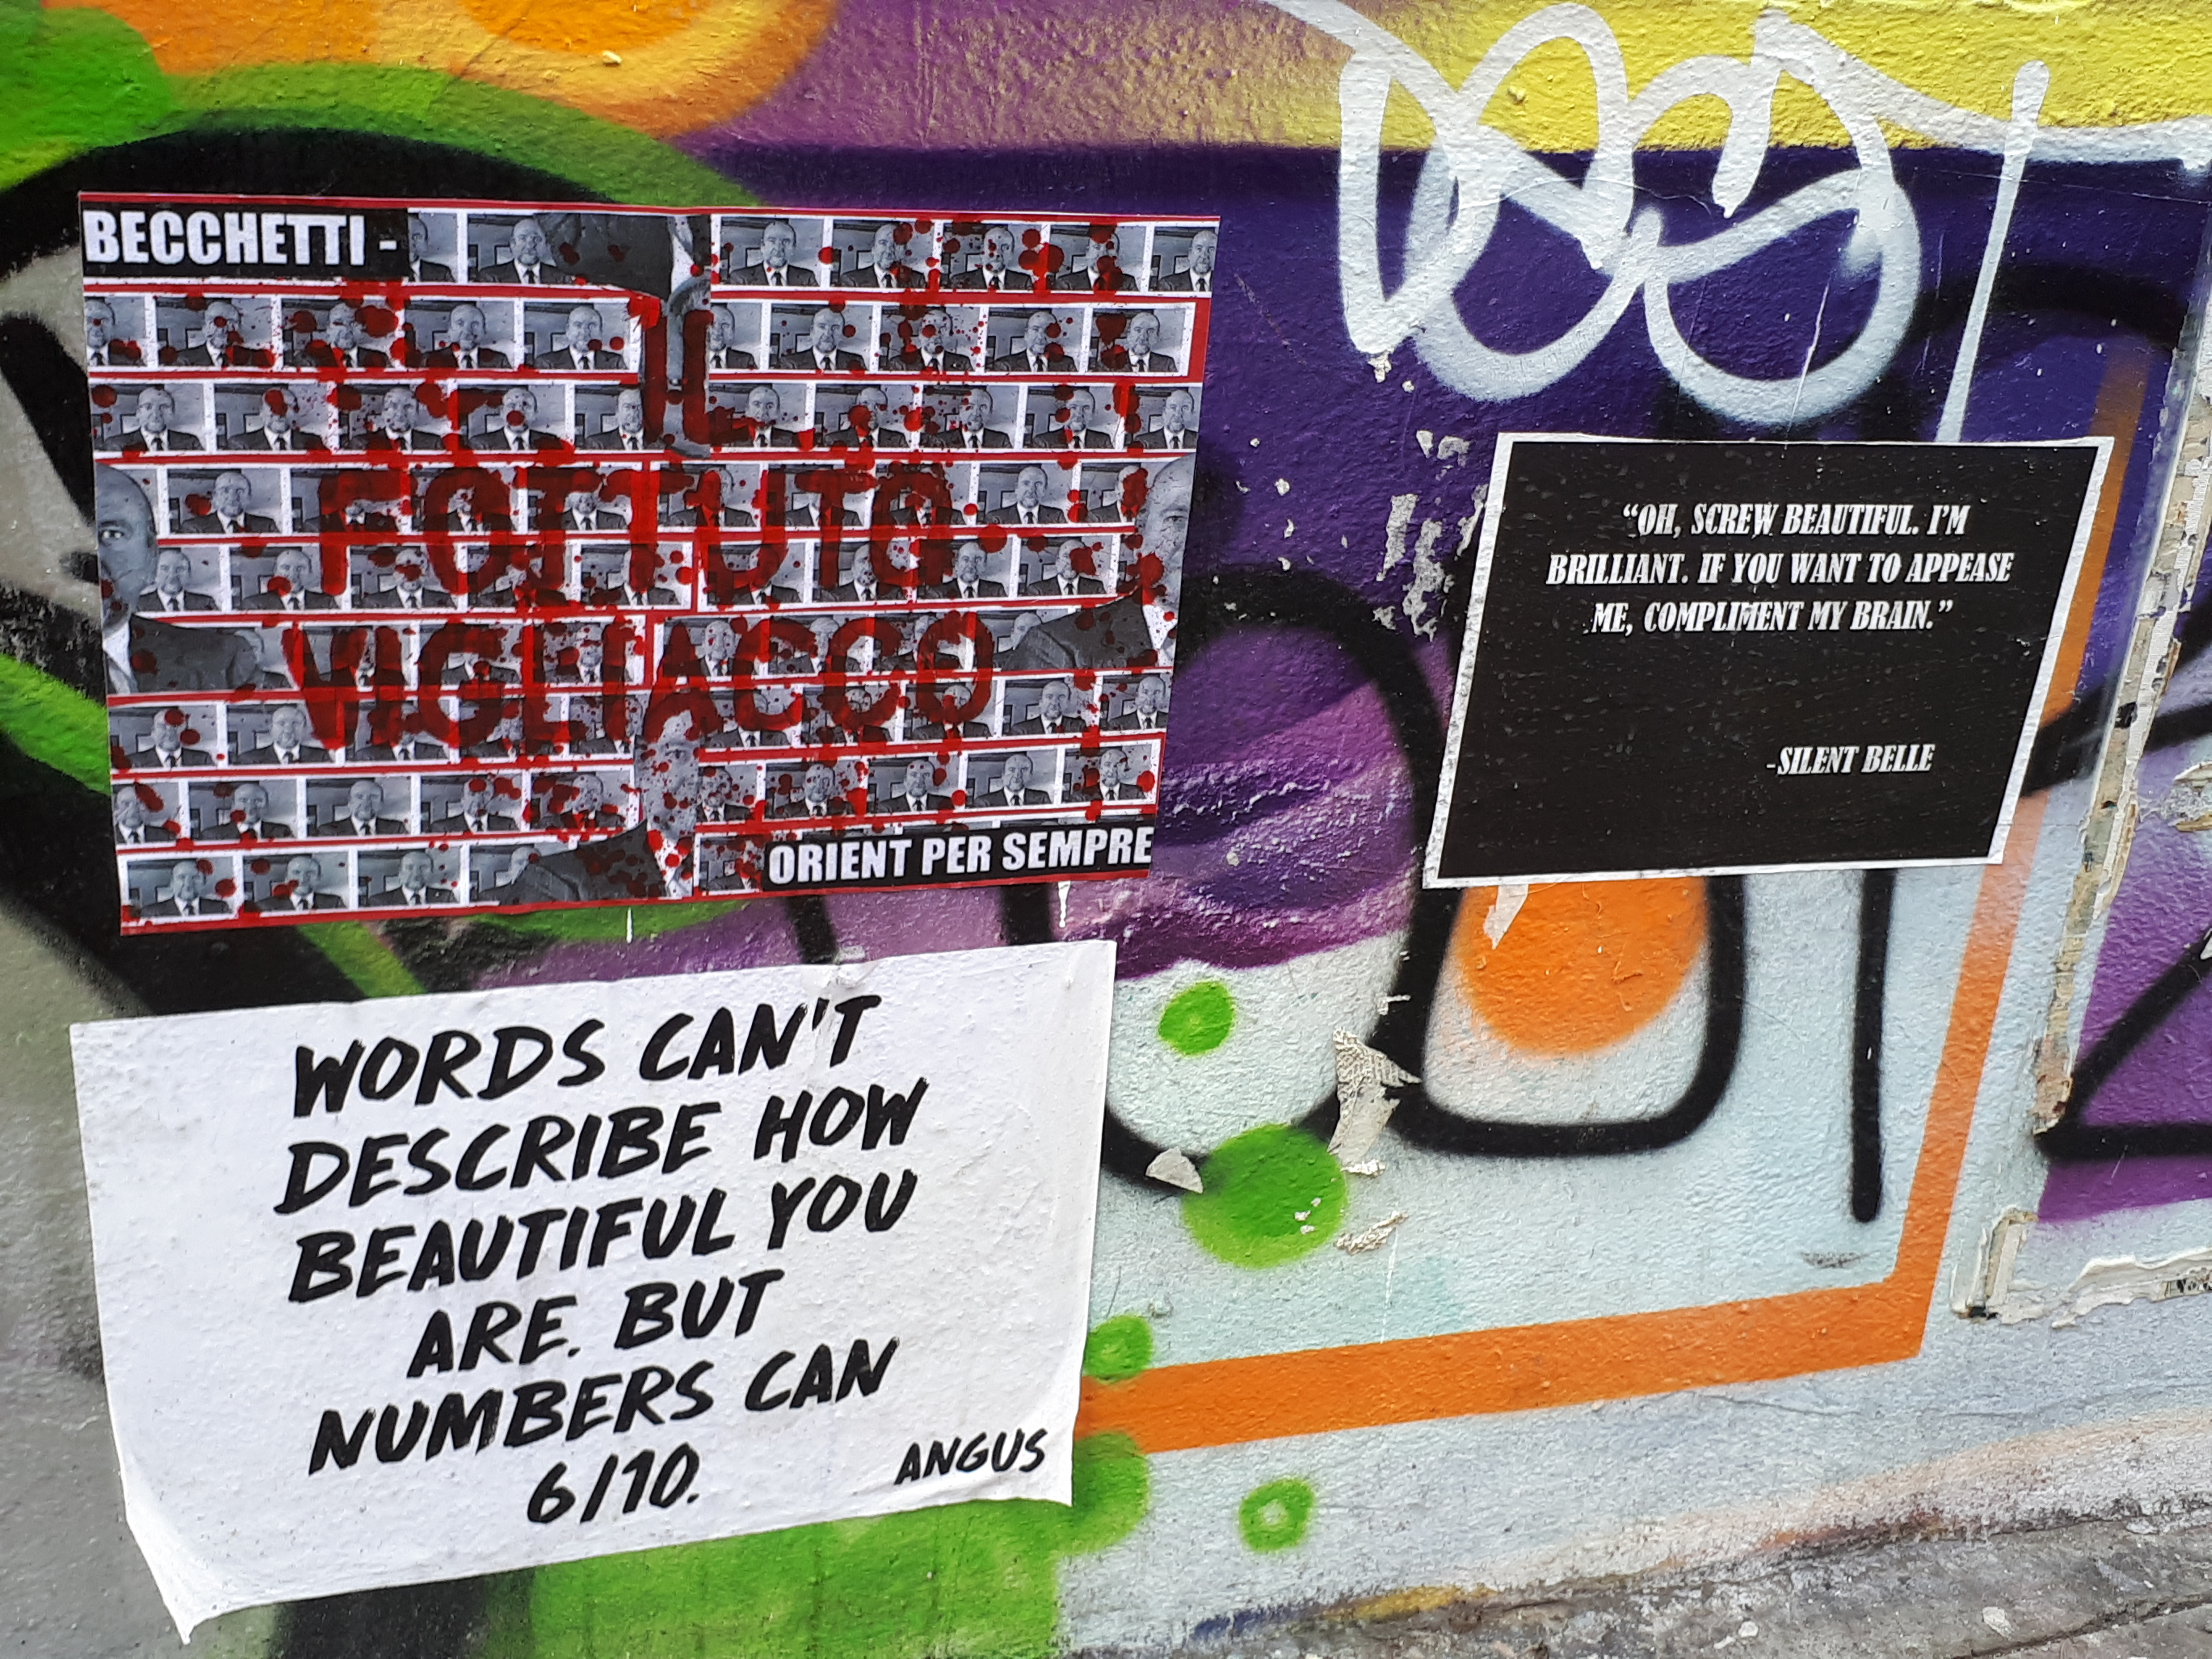 BECCHETTI -
IL
FOTTUTO
VIGLIACCO
ORIENT PER SEMPRE
"OH, SCREW BEAUTIFUL. I'M
BRILLIANT. IF YOU WANT TO APPEASE
ME, COMPLIMENT MY BRAIN."
-SILENT BELLE
WORDS CAN'T
DESCRIBE HOW
BEAUTIFUL YOU
ARE. BUT
NUMBERS CAN
6/10.
ANGUS